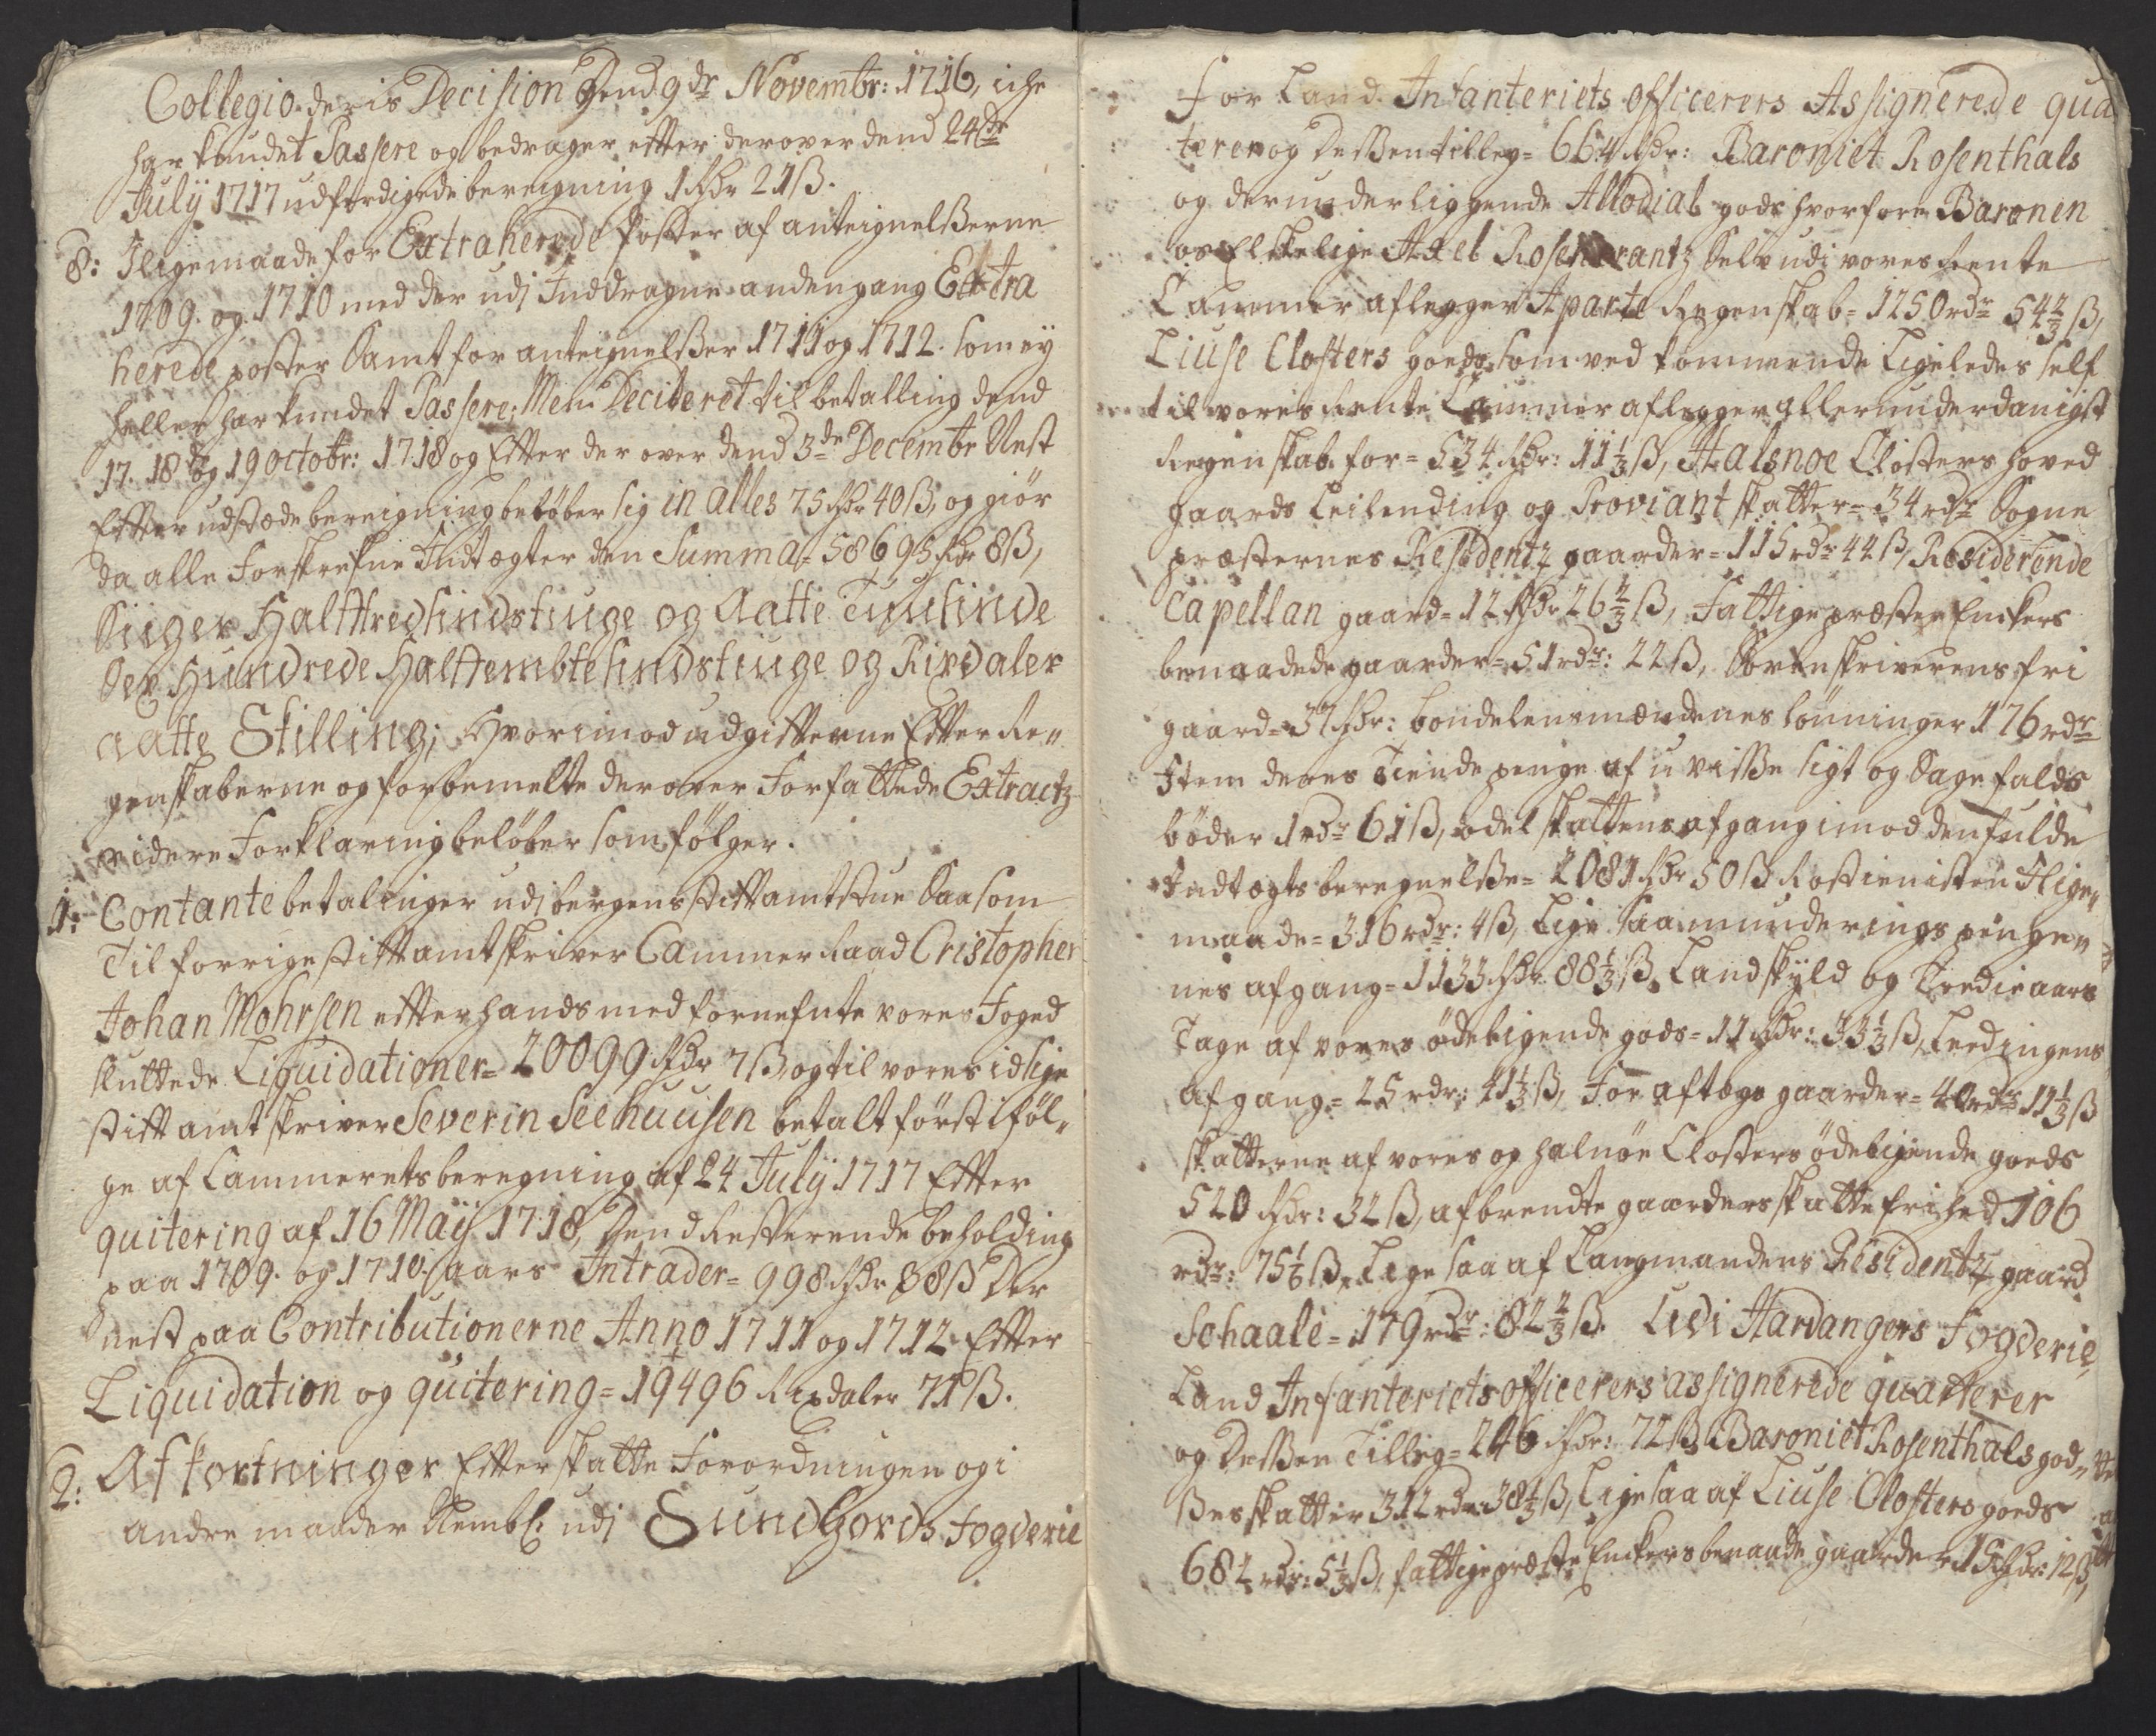 Collegio deris Decision Dend 9de Novembr: 1716, iche
har kundet Passere og bedrager efter derover dend 24de
Julÿ 1717 udferdigede beregning 1 Rdr 21ß.
8: Iligemaade for Extraherede Poster af anteignelßerne
1709. og 1710 med der udj Inddragne andengang Extra
herede poster Samt for anteignelßer 1711 og 1712. som ey
heller har kundet Passere; Men Deciteret til betalling dend
17. 18de og 19 octobr: 1718 og Efter der over dend 3de Decembr Nest
Efter udstede beregning beløber sig in alles 75 Rdr 40ß, og giør
da alle Forskrefne Indtægter den Summa= 58695 Rdr 8ß,
Siiger Halftredsindstiuge og Aatte Tuusinde
Sex Hundrede Halffembtesindstiuge og Rixdaler
aatte Skilling; Hvorimod udgifterne Efter Re„
genskaberne og forbemelte derover Forfattede Extractz
videre Forklaring beløber som følger.
1: Contante betalinger udj bergens stiftamtstue Saasom
Til forrige stiftamtskriver Cammerraad Cristopher
Johan Mohrsen efterhands med fornefnte vores Foged
sluttede Liquidationer= 20099 Rdr 7ß og til vores idsige
stiftamtskriver Severin Seehuusen betalt først iføl„
ge af Cammerets beregning af 24 Julÿ 1717 Efter
quitering af 16 Maÿ 1718, Dend Resterende beholding
paa 1709. og 1710. aars Intrader= 998 Rdr 38ß Der
nest paa Contributionerne Anno 1711 og 1712 Efter
Liquidation og quitering= 19496 Rixdaler 71ß.
2: Afkortninger Efter skatte Forordningen og i
andre maader Nembl: udj Sundhords Fogderie
For Land Infanteriets officerers Assignerede qua
terer og Deßen tilleg= 664 Rdr: Baroniet Rosenthals
og derunderliggende Allodial gods hvorforre Baronen
os Elskelige Axel Rosenkrantz Selv udi vores Rente
Cammer aflegger Aparte Regenskab= 1250 rdr 54⅔ß,
Liuse Closters goeds som ved kommende Ligeledes self
til vores Rente Cammer aflegger allerunderdanigst
Regenskab for= 534 Rdr: 11⅓ß, Halsnoe Closters hoved
gaards Leilending og Proviant skatter= 34 rdr Sogne
præsternes Residentz gaarder= 115 rdr 44ß, Residerende
Capellan gaard= 12 Rdr 26⅔ß, Fattige præste Enkers
benaadede gaarder= 51 rdr: 22ß, Sorenskriverens fri
gaard= 37 Rdr: bondelensmændenes lønninger 176 rdr
Item deres Tiende penge af uvisse sigt og Sagefalds
bøder 1 rdr 61ß, odelskattens afgang imod den fulde
Indtægts beregnelße= 2081 Rdr 50ß Rostienisten Ilige„
maade= 316 rdr: 4ß, Lige saa munderings penge„
nes afgang= 1133 Rdr 88⅓ß, Landskyld og Tredieaars
Tage af vores ødeligende gods= 11 Rdr: 33⅓ß, Leedingens
afgang= 25 rdr: 41⅓ß, For aftogs gaarder= 40 rdr 11⅓ß
skatterne af vores og halnøe Closters ødeligende goeds
520 Rdr: 32ß, afbrendte gaarders skattefrihed 106
rdr: 75⅙ß, Lige saa af Laugmandens Residentz gaard
Schaale= 179 rdr: 82⅔ß. Udi Hardangers Fogderie,
Land Infanteriets officerers assignerede quarterer
og Deßen Tilleg= 246 Rdr: 72ß Baroniet Rosenthals god„
ßes skatter 312 rdr 38⅓ß, Lige saa af Liuse Closters goeds
682 rdr: 5⅓ß, fattige præste Enkers benaade gaarder 15 Rdr: 12ß,